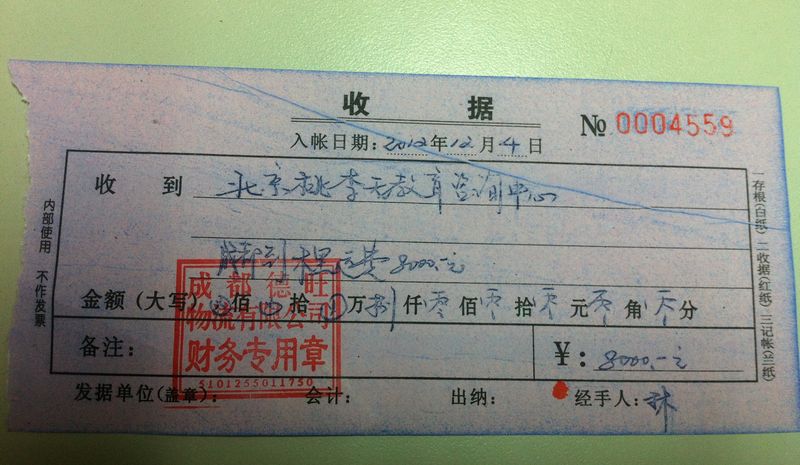 收 据
№ 0004559
入帐日期: 2012年12月4日
收 到 北京桃李天教育咨询中心
成都到 运费8000.-元
金额(大写) 佰 拾 万捌仟零佰零拾零元零角零分
备注: ¥: 8000.-元
发据单位(盖章): 会计: 出纳: 经手人: 林
成都德旺
物流有限公司
财务专用章
5101255011750
内部使用 不作发票
一存根(白纸) 二收据(红纸) 三记帐(兰纸)